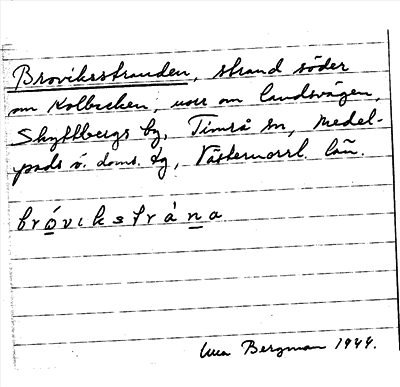 Broviksstranden, strand söder
om Kolbecken, norr om landsvägen,
Skyttbergs by, Timrå sn, Medel-
pads ö. doms. tg, Västernorrl. län.
bróviksstrána
Bergman 1944.